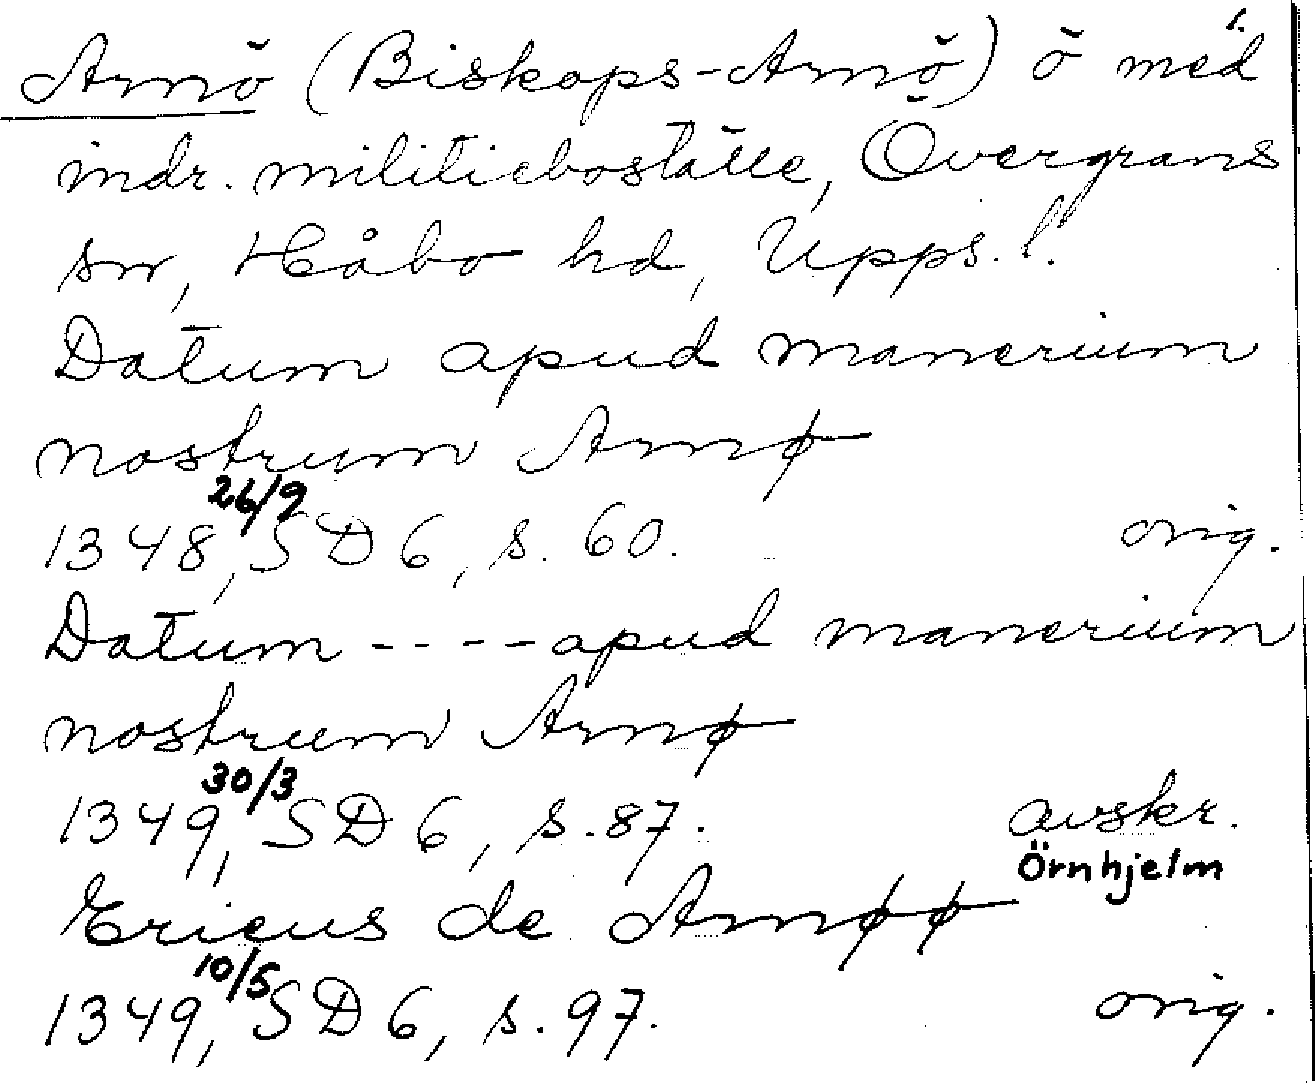 Arnö (Biskops-Arnö) ö med
indr. militieboställe, Övergrans
sn, Håbo hd, Upps. l.
Datum apud manerium
nostrum Arnø
26/9
1348, SD 6, s. 60. orig.
Datum ---- apud manerium
nostrum Arnø
30/3
1349, SD 6, s. 87. avskr.
Örnhjelm
Ericus de Arnøø
10/5
1349, SD 6, s. 97. orig.